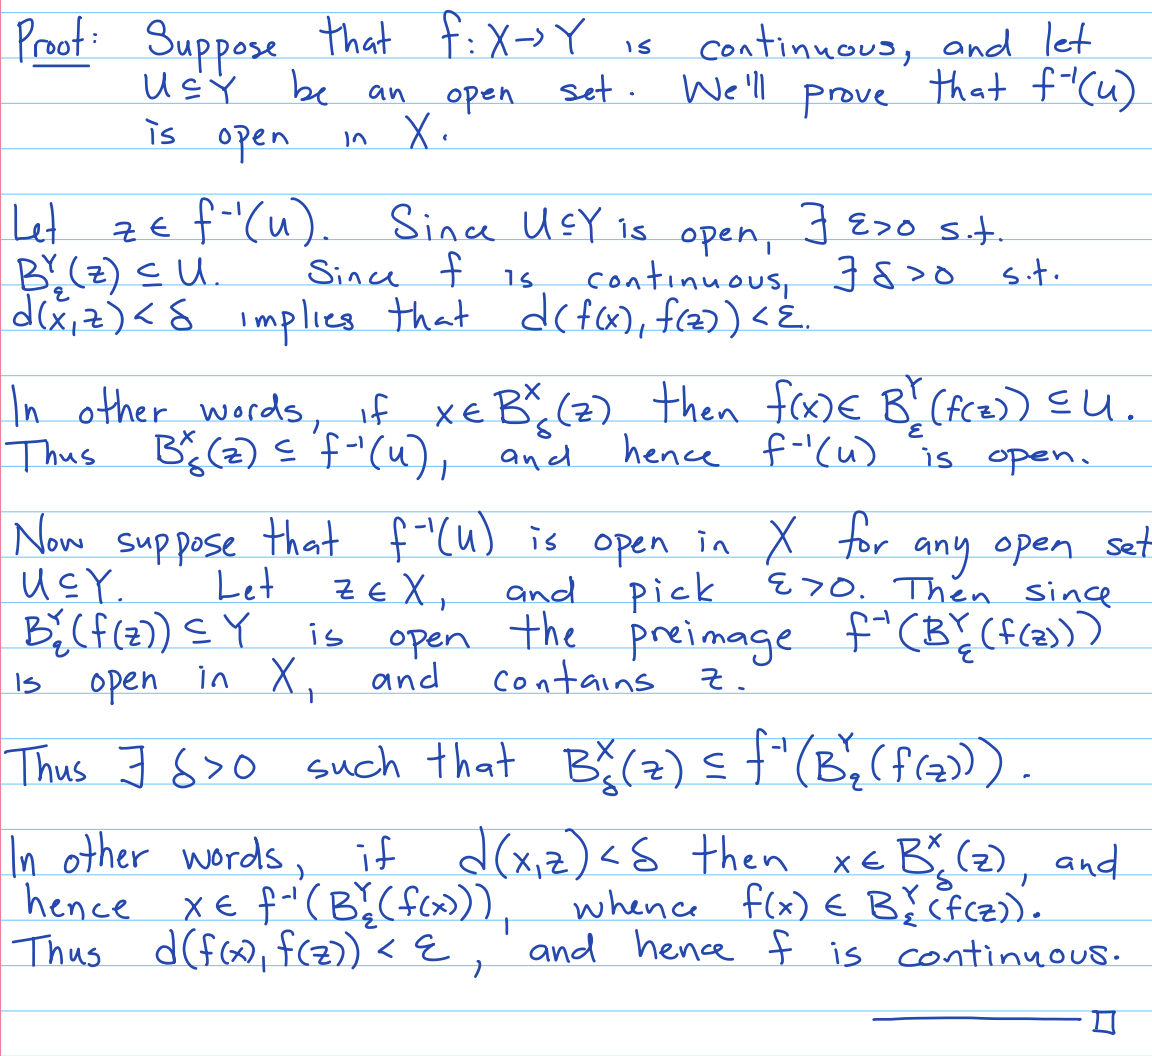 Proof: Suppose that f: X→Y is continuous, and let
U⊆Y be an open set. We'll prove that f⁻¹(U)
is open in X.
Let z∈f⁻¹(U). Since U⊆Y is open, ∃ ε>0 s.t.
B^Y_ε(z)⊆U. Since f is continuous, ∃ δ>0 s.t.
d(x,z)<δ implies that d(f(x),f(z))<ε.
In other words, if x∈B^X_δ(z) then f(x)∈B^Y_ε(f(z))⊆U.
Thus B^X_δ(z)⊆f⁻¹(U), and hence f⁻¹(U) is open.
Now suppose that f⁻¹(U) is open in X for any open set
U⊆Y. Let z∈X, and pick ε>0. Then since
B^Y_ε(f(z))⊆Y is open the preimage f⁻¹(B^Y_ε(f(z))
is open in X, and contains z.
Thus ∃ δ>0 such that B^X_δ(z)⊆f⁻¹(B^Y_ε(f(z))).
In other words, if d(x,z)<δ then x∈B^X_δ(z), and
hence x∈f⁻¹(B^Y_ε(f(x))), whence f(x)∈B^Y_ε(f(z)).
Thus d(f(x),f(z))<ε, and hence f is continuous.
□